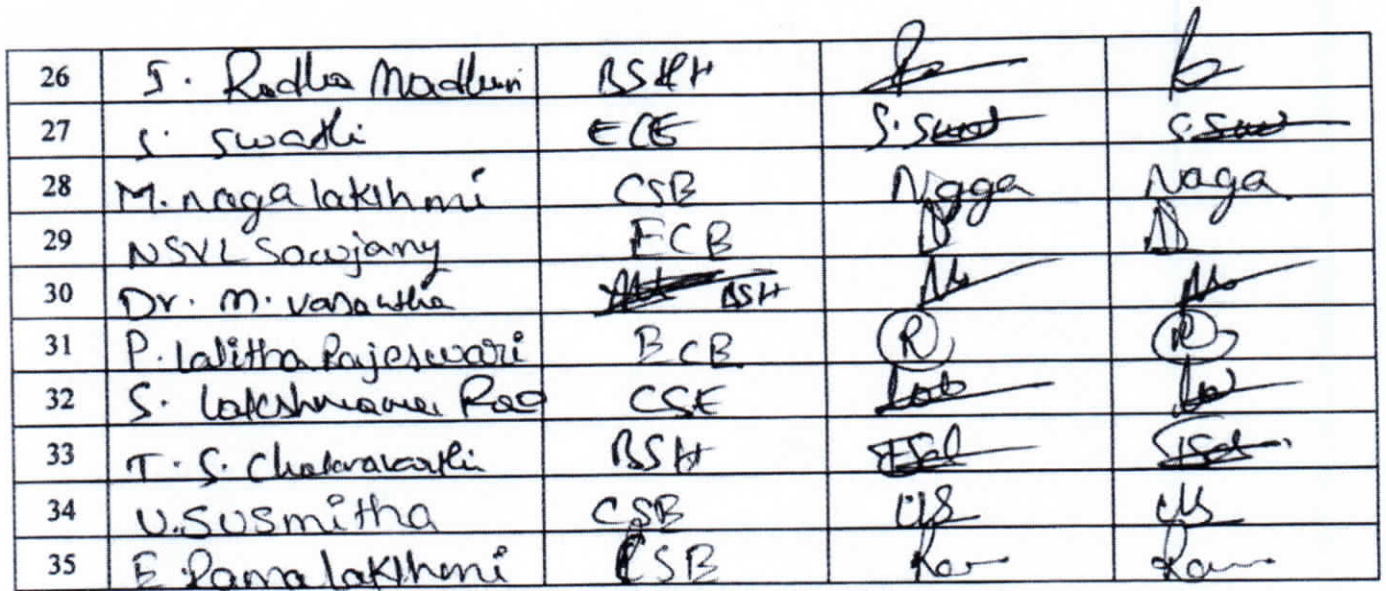 26 J. Radha Madhuri BS&H
27 S. Swathi ECE S.Swat S.Swat
28 M. naga lakshmi CSE Naga Naga
29 NSVL Sowjany ECE
30 Dr. M. Vasantha BSH
31 P. Lalitha Rajeswari ECE R R
32 S. Lakshmana Rao CSE
33 T. S. Chakravarthi BSH
34 U. SUSmitha CSE US US
35 E. Ramalakshmi CSE Ram Ram